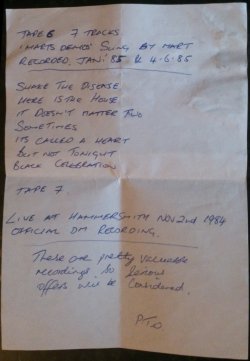 TAPE 6 7 TRACKS.
'MARTS DEMOS' SUNG BY MART
RECORDED JAN! 85 & 4.6.85
SHAKE THE DISEASE
HERE IS THE HOUSE.
IT DOESN'T MATTER TWO
SOMETIMES
ITS CALLED A HEART
BUT NOT TONIGHT
BLACK CELEBRATION
TAPE 7.
LIVE AT HAMMERSMITH NOV 2nd 1984
OFFICIAL DM RECORDING.
These are pretty valuable
recordings. So serious
offers will be considered.
P.T.O